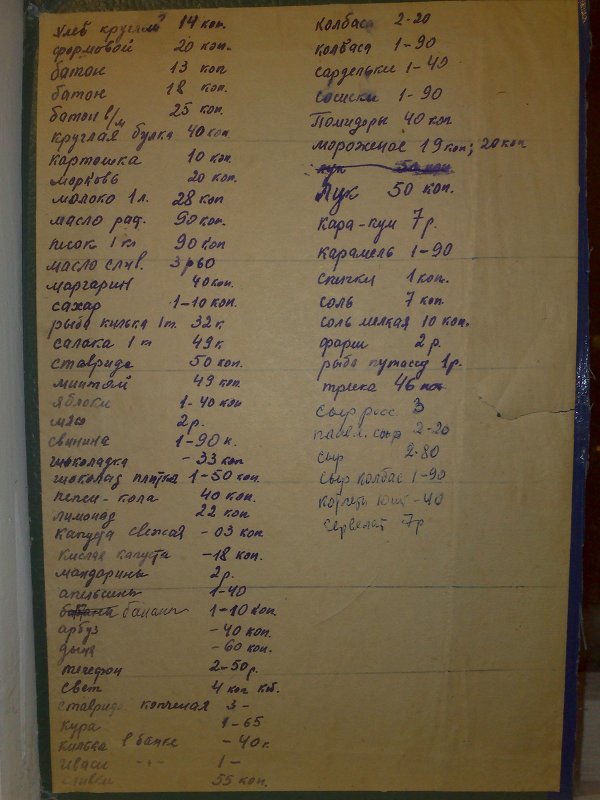 хлеб круглый 14 коп.
формовой 20 коп.
батон 13 коп
батон 18 коп.
батон в/м 25 коп.
круглая булка 40 коп
картошка 10 коп.
морковь 20 коп.
молоко 1 л. 28 коп
масло рад. 90 коп.
песок 1 кг 90 коп
масло слив. 3р60
маргарин 40 коп.
сахар 1-10 коп.
рыба килька 1 кг. 32 к.
салака 1 кг 49 к.
ставрида 50 коп.
минтай 49 коп.
яблоки 1-40 коп
мясо 2р.
свинина 1-90 к.
шоколадка - 33 коп
шоколад плитка 1-50 коп.
пепси-кола 40 коп.
лимонад 22 коп
капуста свежая - 03 коп
кислая капуста - 18 коп.
мандарины 2р.
апельсины 1-40
бананы 1-10 коп.
арбуз - 40 коп.
дыня - 60 коп.
телефон 2-50р.
свет 4 коп кв.
ставрида копченая 3-
кура 1-65
килька в банке - 40 к.
иваси -"- 1-
сливки 55 коп.
колбаса 2-20
колбаса 1-90
сардельки 1-40
сосиски 1-90
Помидоры 40 коп
мороженое 19 коп; 20 коп
лук 50 коп
Лук 50 коп.
кара-кум 7р.
карамель 1-90
спички 1 коп.
соль 7 коп.
соль мелкая 10 коп.
фарш 2р.
рыба путассу 1р.
треска 46 коп
сыр росс 3
плавл. сыр 2-20
сыр 2-80
сыр колбас 1-90
котлеты 10 шт -40
сервелат 7р